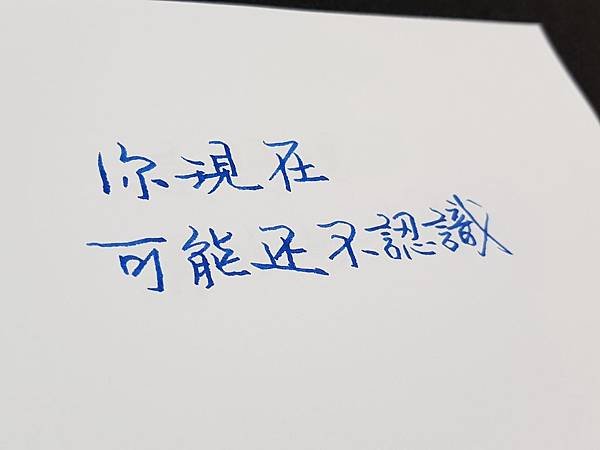 你現在
可能还不認識